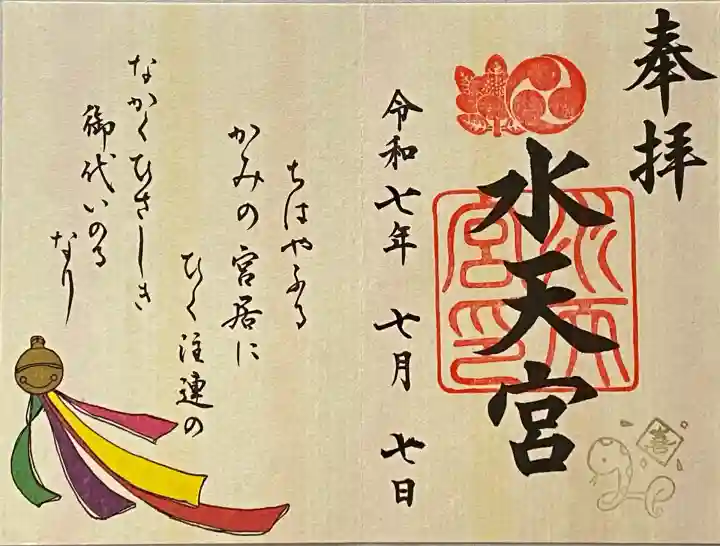 奉拝
水天宮
水天宮印
令和七年 七月 七日
喜
ちはやふる
かみの宮居に
ひく注連の
なかくひさしき
御代いのる
なり